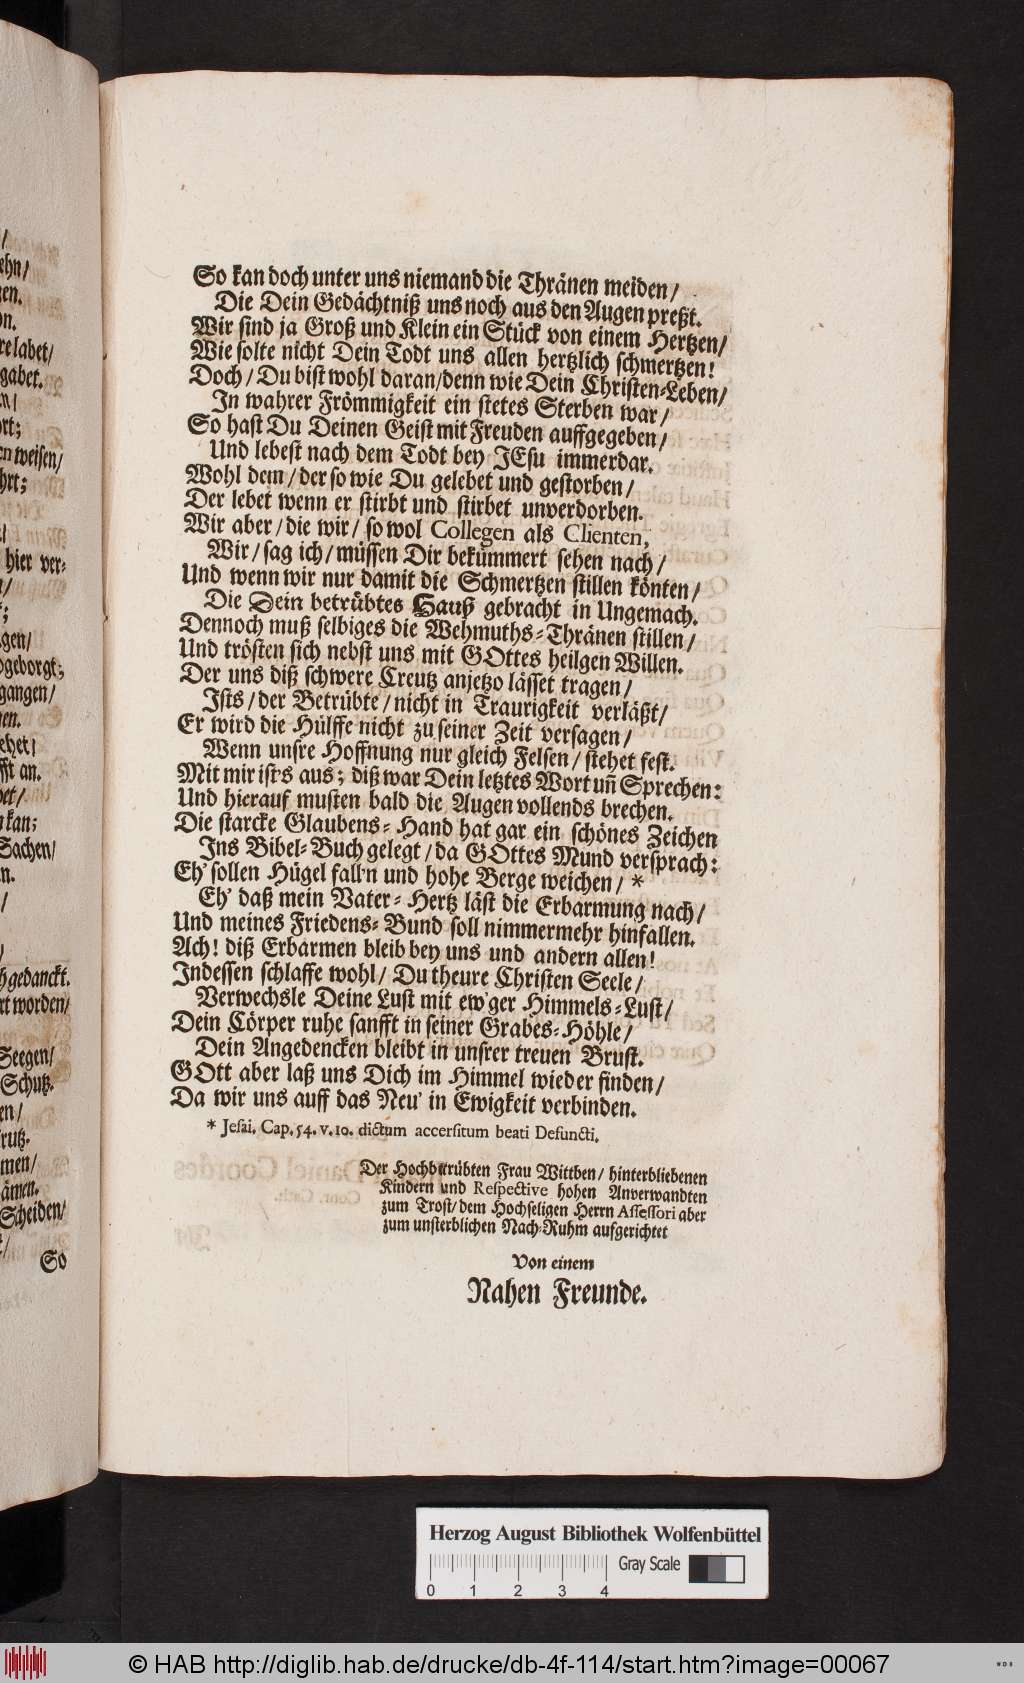 So kan doch unter uns niemand die Thränen meiden/
Die Dein Gedächtniß uns noch aus den Augen preßt.
Wir sind ja Groß und Klein ein Stück von einem Hertzen/
Wie solte nicht Dein Todt uns allen hertzlich schmertzen!
Doch/ Du bist wohl daran/ denn wie Dein Christen-Leben/
In wahrer Frömmigkeit ein stetes Sterben war/
So hast Du Deinen Geist mit Freuden auffgegeben/
Und lebest nach dem Todt bey JEsu immerdar.
Wohl dem/ der so wie Du gelebet und gestorben/
Der lebet wenn er stirbt und stirbet unverdorben.
Wir aber/ die wir/ so wol Collegen als Clienten,
Wir/ sag ich/ müssen Dir bekümmert sehen nach/
Und wenn wir nur damit die Schmertzen stillen könten/
Die Dein betrübtes Hauß gebracht in Ungemach.
Dennoch muß selbiges die Wehmuths-Thränen stillen/
Und trösten sich nebst uns mit GOttes heilgen Willen.
Der uns diß schwere Creutz anjetzo lässet tragen/
Ists/ der Betrübte/ nicht in Traurigkeit verläßt/
Er wird die Hülffe nicht zu seiner Zeit versagen/
Wenn unsre Hoffnung nur gleich Felsen/ stehet fest.
Mit mir ist's aus; diß war Dein letztes Wort uñ Sprechen:
Und hierauf musten bald die Augen vollends brechen.
Die starcke Glaubens-Hand hat gar ein schönes Zeichen
Ins Bibel-Buch gelegt/ da GOttes Mund versprach:
Eh' sollen Hügel fall'n und hohe Berge weichen/ *
Eh' daß mein Vater-Hertz läst die Erbarmung nach/
Und meines Friedens-Bund soll nimmermehr hinfallen.
Ach! diß Erbarmen bleib bey uns und andern allen!
Indessen schlaffe wohl/ Du theure Christen Seele/
Verwechsle Deine Lust mit ew'ger Himmels-Lust/
Dein Cörper ruhe sanfft in seiner Grabes-Höhle/
Dein Angedencken bleibt in unsrer treuen Brust.
GOtt aber laß uns Dich im Himmel wieder finden/
Da wir uns auff das Neu' in Ewigkeit verbinden.
* Jesai. Cap. 54. v. 10. dictum accersitum beati Defuncti.
Der Hochbetrübten Frau Witthen/ hinterbliebenen
Kindern und Respective hohen Anverwandten
zum Trost/ dem Hochseligen Herrn Assessori aber
zum unsterblichen Nach-Ruhm aufgerichtet
Von einem
Nahen Freunde.
Herzog August Bibliothek Wolfenbüttel
Gray Scale
0 1 2 3 4
© HAB http://diglib.hab.de/drucke/db-4f-114/start.htm?image=00067